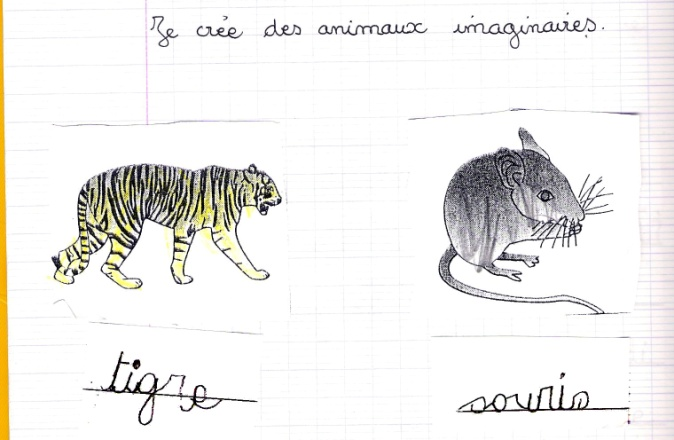 Je crée des animaux imaginaires.
tigre
souris